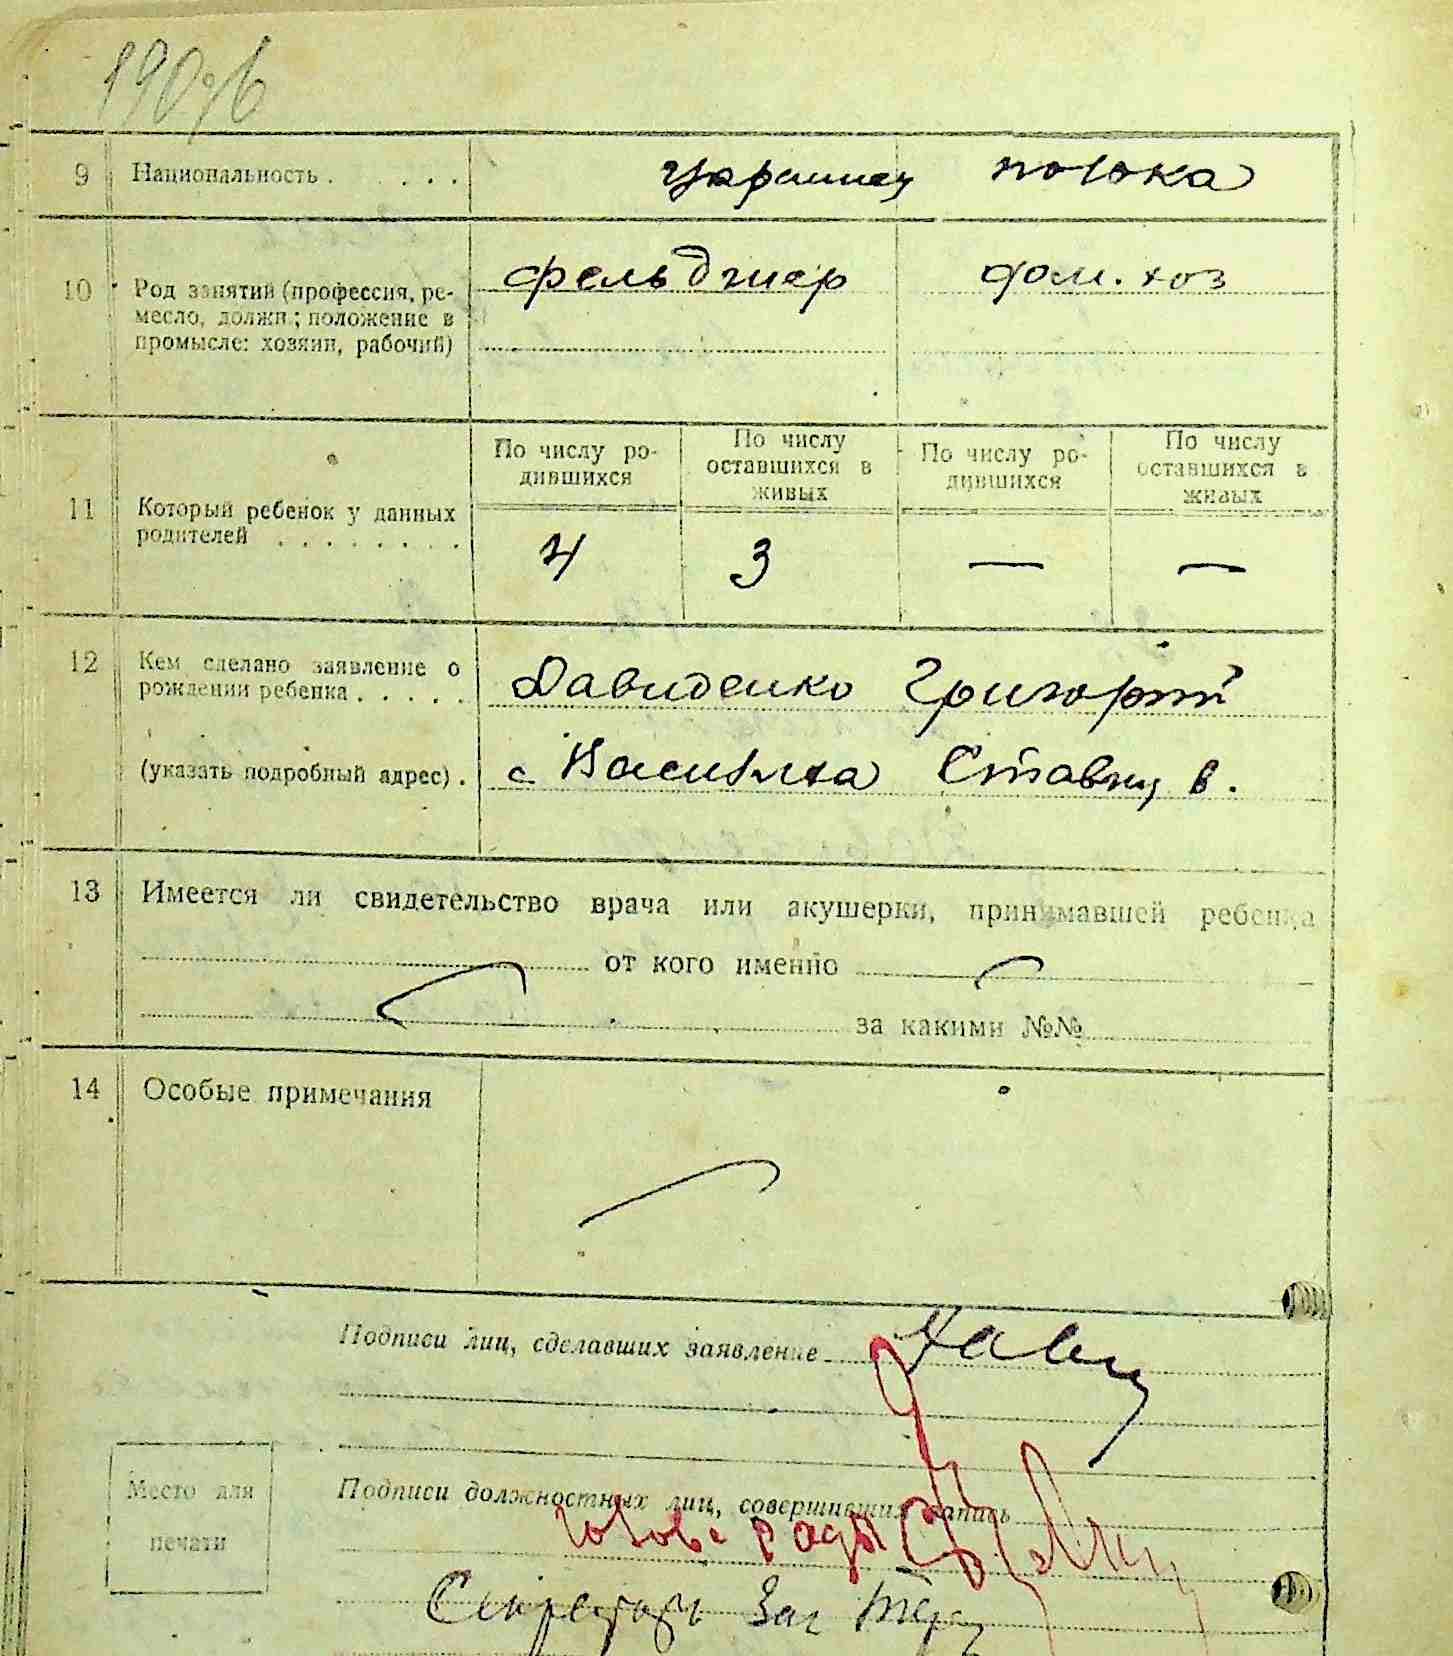 9 Национальность . . . . . . украинец полька
10 Род занятий (профессия, ре-
месло, должн.; положение в
промысле: хозяин, рабочий)
фельдшер дом. хоз
11 Который ребенок у данных
родителей . . . . . . . .
По числу ро-
дившихся
По числу
оставшихся в
живых
По числу ро-
дившихся
По числу
оставшихся в
живых
4 3 — —
12 Кем сделано заявление о
рождении ребенка . . . . .
Давиденко Григорий
(указать подробный адрес) .
с. Ставищ в.
13 Имеется ли свидетельство врача или акушерки, принимавшей ребенка
от кого именно
за какими №№
14 Особые примечания
Подписи лиц, сделавших заявление
Подписи должностных лиц, совершивших запись
Место для
печати
голова ради
Секретарь